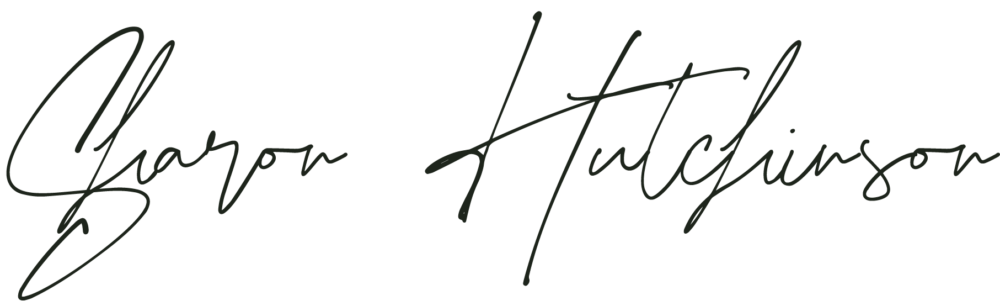 Sharon Hutchinson